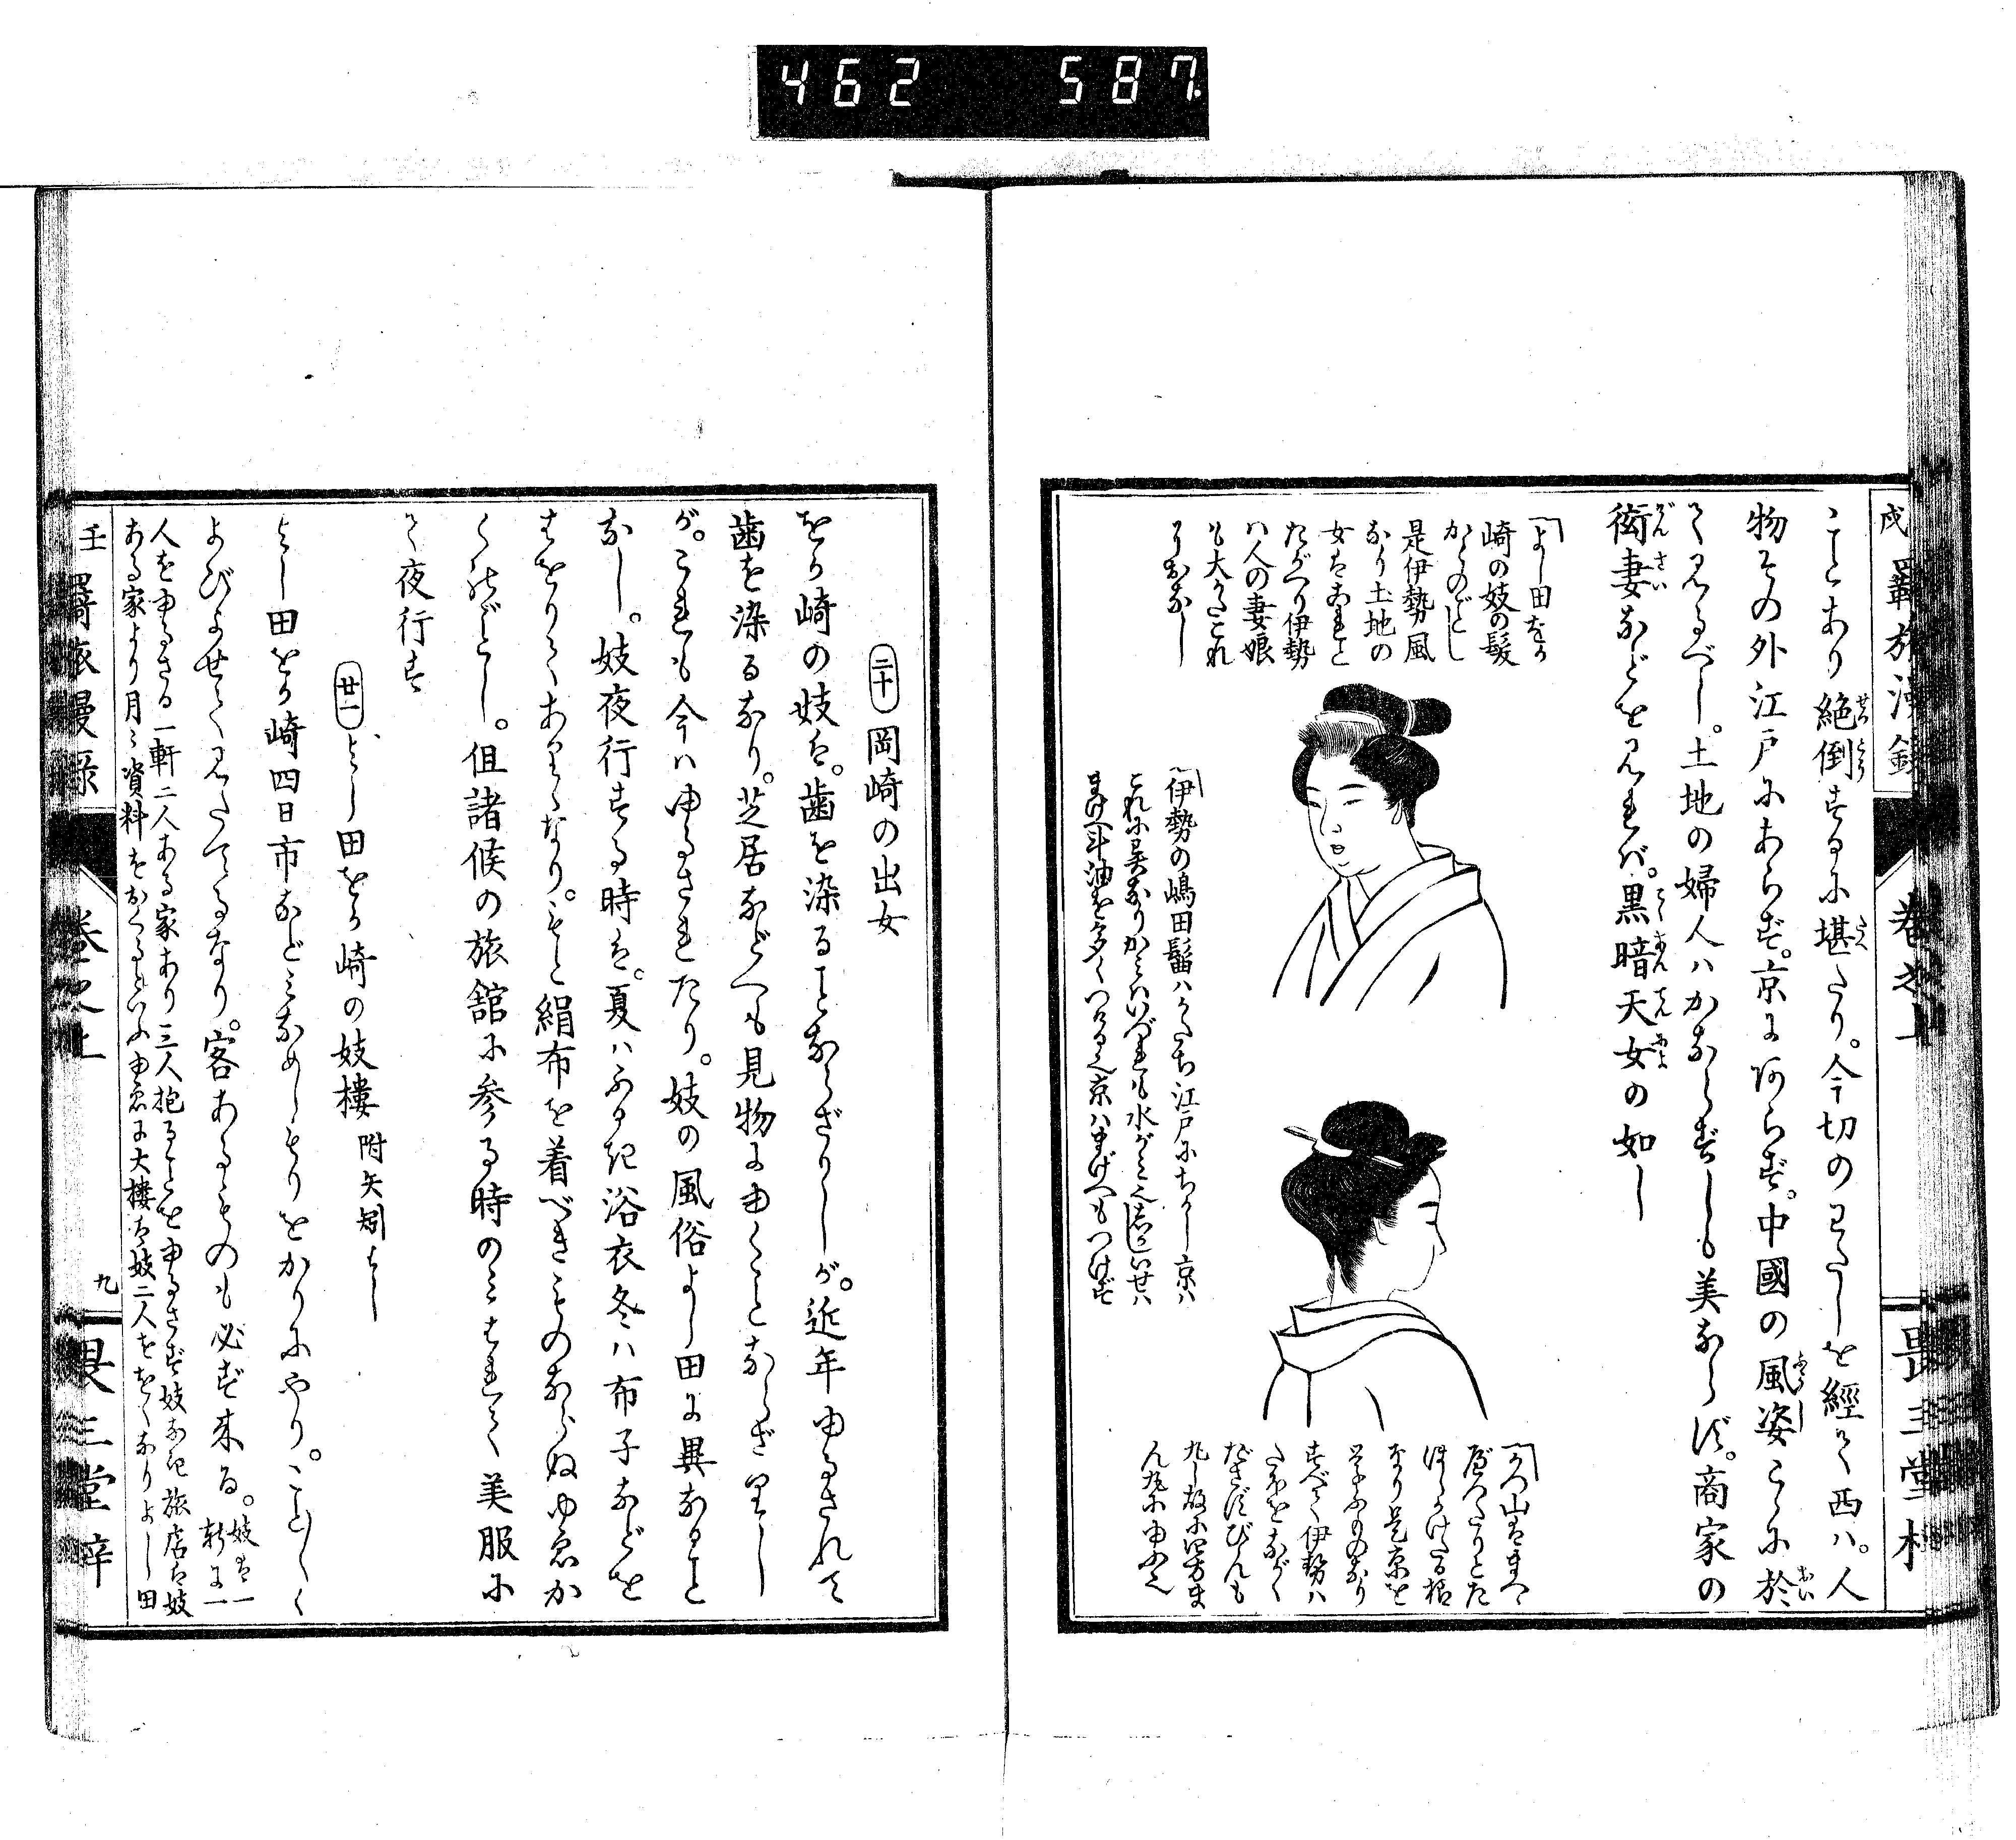 462 587
戌 羇旅漫録 巻之上 畏三堂梓
ことあり絶倒するに堪たり。今切のわたしを經て西ハ。人
物その外江戸にあらず。京にあらず。中國の風姿こゝに於
て見るべし。土地の婦人ハかならずしも美ならず。商家の
衒妻などを見れバ。黒暗天女の如し
よし田をか
崎の妓の髪
かくのごとし
是伊勢風
なり土地の
女はあれと
たがへり伊勢
ハ人の妻娘
も大かたこれ
におなし
伊勢の嶋田髷ハかたち江戸にちかし京ハ
これに異なりかミハいづれも水がミ也
まげへ斗油を多くつける也京ハまげへもつけず
すべて伊勢ハ
たぼをながく
ださずびんも
二十 岡崎の出女
をか崎の妓は。歯を染ることならざりしが。近年ゆるされて
歯を染るなり。芝居などへも見物にゆくことならざりし
が。これも今ハゆるされたり。妓の風俗よし田に異なること
なし。妓夜行する時は。夏ハふるき浴衣冬ハ布子などを
はをりてあるくなり。もと絹布を着べきものならぬゆゑか
くのごとし。但諸候の旅舘に参る時のミはれて美服に
て夜行す
廿一 よし田をか崎の妓樓 附矢矧はし
よし田をか崎四日市などミなめしもりをかりにやり。こと〴〵く
よびよせて見たてるなり。客あるものも必ず来る。妓は一軒に一
人をゆるさる一軒二人ある家あり三人抱ることをゆるさず妓なき旅店は妓
ある家より月々資料をおくるといふゆゑに大樓は妓二人をおくなりよし田
壬 羇旅漫録 巻之上 九 畏三堂梓